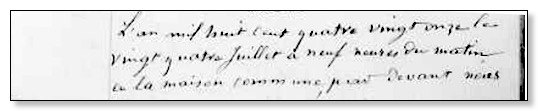 L'an mil huit cent quatre vingt onze le
vingt quatre Juillet à neuf heures du matin
en la maison commune, par devant nous